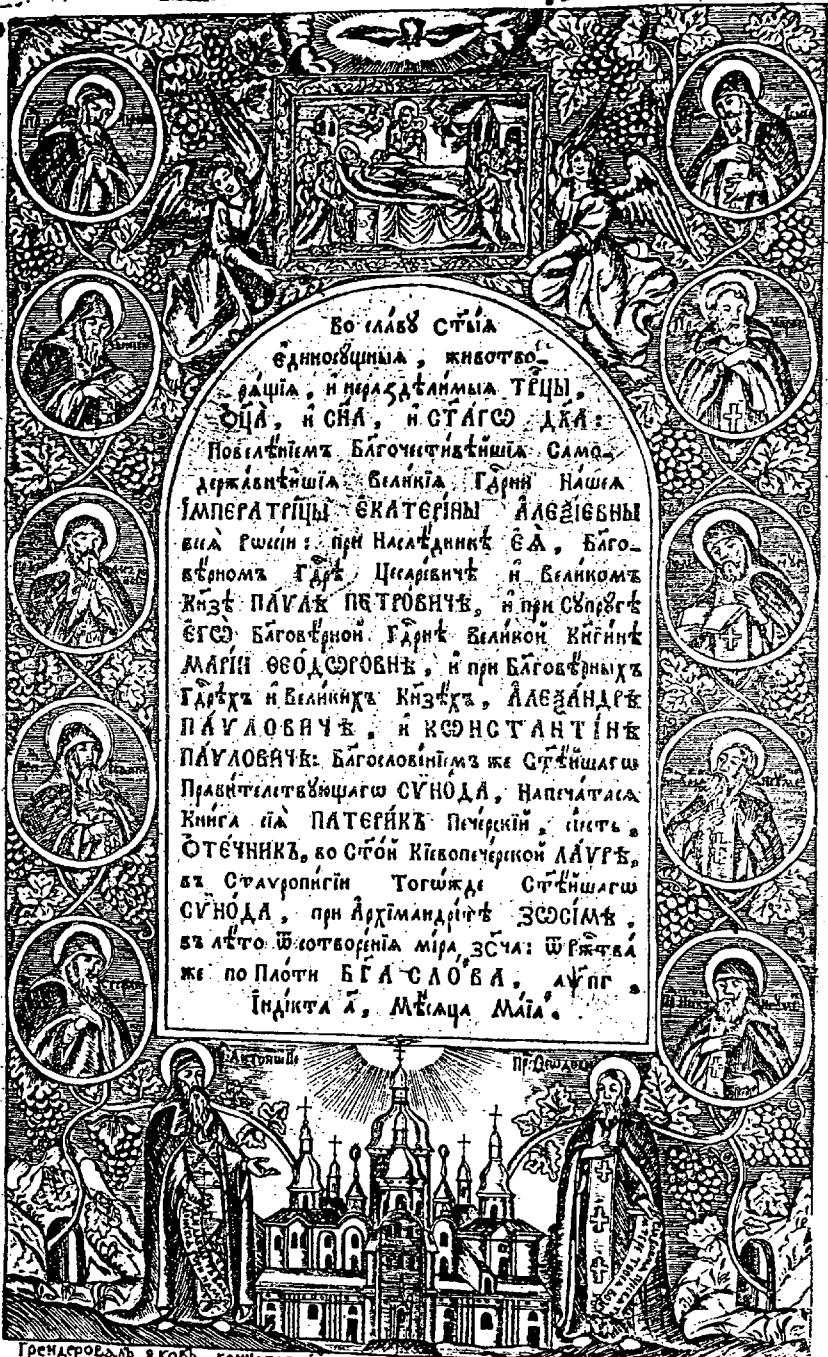 Во славꙋ Ст҃ы́ѧ
є҆диносꙋ́щныѧ, животво-
рѧ́щїѧ, и҆ нераздѣли́мыѧ ТРЦ҃Ы,
Ѻ҆Ц҃А̀, и҆ СН҃А, и҆ СТ҃А́ГѠ ДХ҃А:
Повелѣ́нїемъ Бл҃гочести́вѣйшїѧ Само-
держа́внѣйшїѧ Вели́кїѧ Гдⷭ҇рни На́шеѧ
І҆МПЕРАТРИ́ЦЫ Є҆КАТЕРІ́НЫ А҆ЛЕѮІ́ЕВНЫ
всеѧ̀ Рѡссі́и: при Наслѣ́дникѣ Є҆Ѧ̀, Бл҃го-
вѣ́рномъ Гдⷭ҇рѣ̀ Цесаре́вичѣ и҆ Вели́комъ
Кн҃зѣ ПА́ѴЛѢ ПЕТРО́ВИЧѢ, и҆ при Сꙋпрꙋ́гѣ
Є҆ГѠ̀ Бл҃говѣ́рной Гдⷭ҇рнѣ Вели́кой Кн҃ги́нѣ
МАРІ́И ѲЕО́ДѠРОВНѢ, и҆ при Бл҃говѣ́рныхъ
Гдⷭ҇рѣхъ и҆ Вели́кихъ Кн҃зѣхъ, А҆ЛЕѮА́НДРѢ
ПА́ѴЛОВИЧѢ, и҆ КѠНСТАНТІ́НѢ
ПА́ѴЛОВИЧѢ: Бл҃гослове́нїемъ же Ст҃ѣ́йшагѡ
Прави́тельствꙋющагѡ СѴНО́ДА, Напеча́тасѧ
Кни́га сїѧ̀ ПАТЕРИ́КЪ Пече́рскїй, си́есть,
Ѻ҆ТЕ́ЧНИКЪ, во Ст҃о́й Кїевопече́рской ЛА́ѴРѢ,
въ Ставропиги́и Тогѡ́жде Ст҃ѣ́йшагѡ
СѴНО́ДА, при А҆рхїмандрі́тѣ ЗѠСІ́МѢ,
въ лѣ́то ѿ сотворе́нїѧ мі́ра ҂ЗС҃ЧА: ѿ Ржⷭ҇тва̀
же по Пло́ти БГ҃А СЛО́ВА, аѱ҃пг.
І҆ндї́кта а҃, Мѣ́сѧца Ма́їа.
Пр: Антонїй Пе
Пр: Ѳеодоси
Грендеровалъ Ꙗковъ